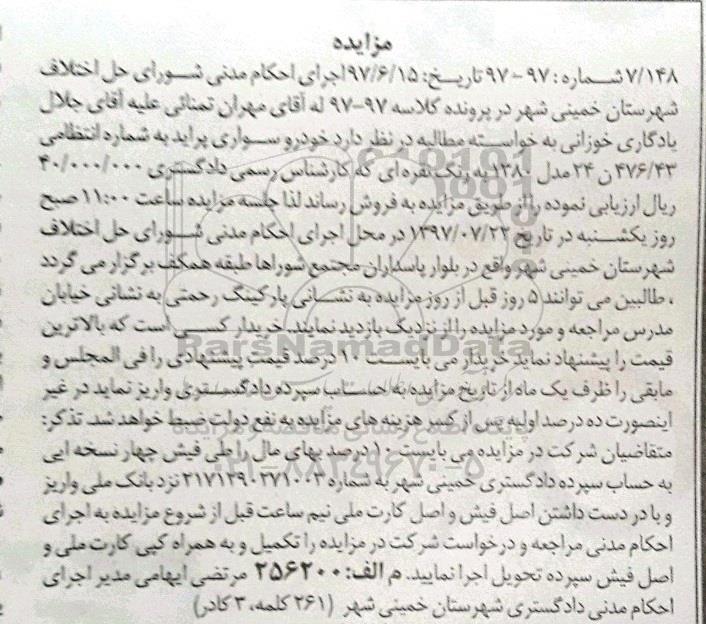 مزایده
۷/۱۴۸ شماره: ۹۷ - ۹۷ تاریخ: ۹۷/۶/۱۵ اجرای احکام مدنی شورای حل اختلاف
شهرستان خمینی شهر در پرونده کلاسه ۹۷-۹۷ له آقای مهران تمنائی علیه آقای جلال
یادگاری خوزانی به خواسته مطالبه در نظر دارد خودرو سواری پراید به شماره انتظامی
۴۷۶/۴۳ ن ۲۴ مدل ۱۳۸۰ به رنگ نقره ای که کارشناس رسمی دادگستری ۴۰/۰۰۰/۰۰۰
ریال ارزیابی نموده را از طریق مزایده به فروش رساند لذا جلسه مزایده ساعت ۱۱:۰۰ صبح
روز یکشنبه در تاریخ ۱۳۹۷/۰۷/۲۲ در محل اجرای احکام مدنی شورای حل اختلاف
شهرستان خمینی شهر واقع در بلوار پاسداران مجتمع شوراها طبقه همکف برگزار می گردد
، طالبین می توانند ۵ روز قبل از روز مزایده به نشانی پارکینگ رحمتی به نشانی خیابان
مدرس مراجعه و مورد مزایده را از نزدیک بازدید نمایند. خریدار کسی است که بالاترین
قیمت را پیشنهاد نماید خریدار می بایست ۱۰ درصد قیمت پیشنهادی را فی المجلس و
مابقی را ظرف یک ماه از تاریخ مزایده به حساب سپرده دادگستری واریز نماید در غیر
اینصورت ده درصد اولیه پس از کسر هزینه های مزایده به نفع دولت ضبط خواهد شد. تذکر:
متقاضیان شرکت در مزایده می بایست ۱۰ درصد بهای مال را طی فیش چهار نسخه ایی
به حساب سپرده دادگستری خمینی شهر به شماره ۲۱۷۱۲۹۰۲۷۱۰۰۳ نزد بانک ملی واریز
و با در دست داشتن اصل فیش و اصل کارت ملی نیم ساعت قبل از شروع مزایده به اجرای
احکام مدنی مراجعه و درخواست شرکت در مزایده را تکمیل و به همراه کپی کارت ملی و
اصل فیش سپرده تحویل اجرا نمایید. م الف: ۲۵۶۲۰۰ مرتضی ایهامی مدیر اجرای
احکام مدنی دادگستری شهرستان خمینی شهر (۲۶۱ کلمه، ۳ کادر)
ParsNamadData
۰۲۱-۸۸۳۴۹۶۷۰-۵